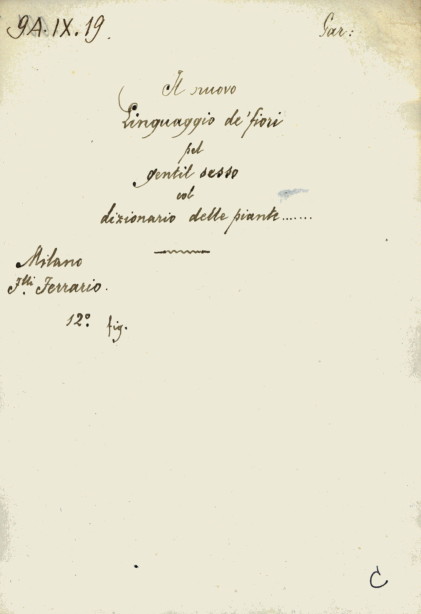 9A.IX.19.
Gar:
Il nuovo
Linguaggio de' fiori
pel
gentil sesso
col
dizionario delle piante.......
Milano
Flli Ferrario.
12º. fig.
C